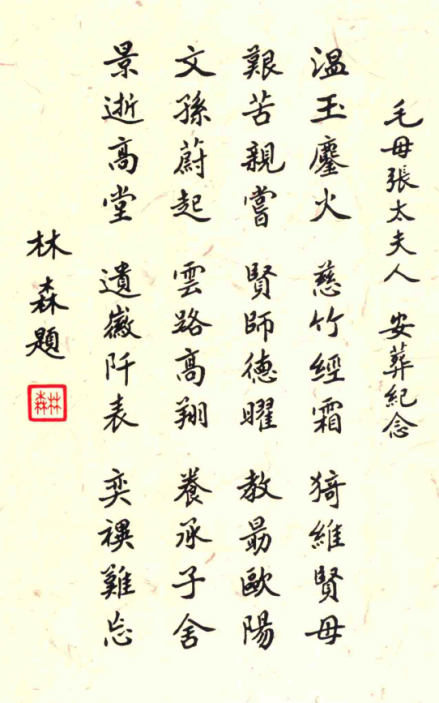 毛母張太夫人 安葬紀念
溫玉鏖火 慈竹經霜 猗維賢母
艱苦親嘗 賢師德曜 教勗歐陽
文孫蔚起 雲路高翔 養承子舍
景逝高堂 遺徽阡表 奕禩難忘
林森題
林森